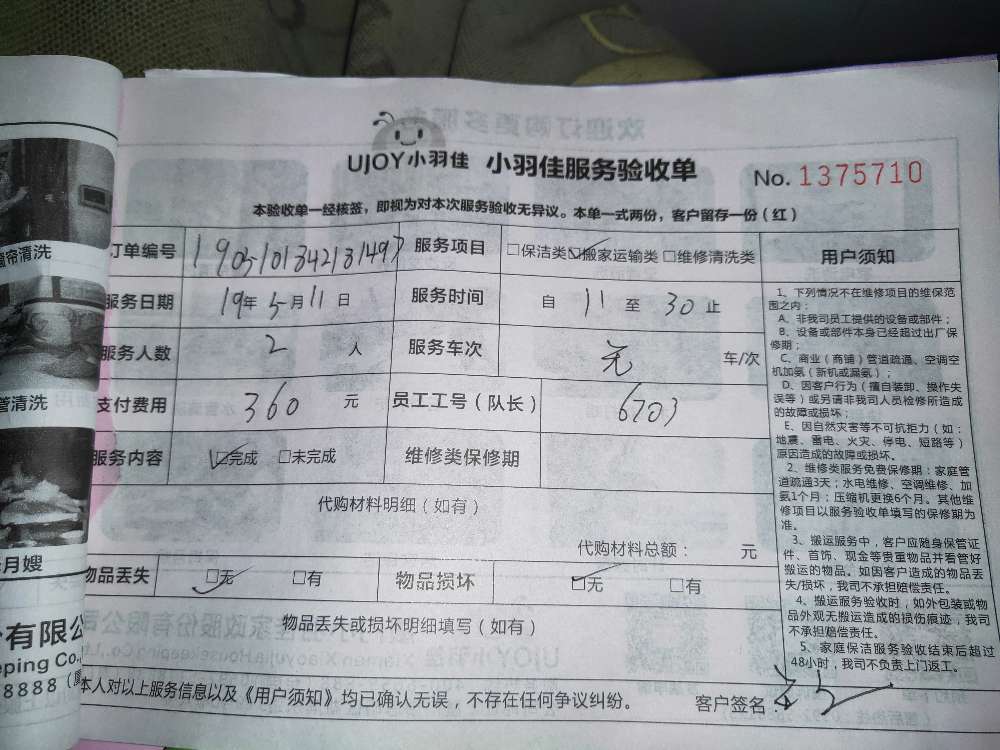 UJOY小羽佳 小羽佳服务验收单
No. 1375710
本验收单一经核签，即视为对本次服务验收无异议。本单一式两份，客户留存一份（红）
订单编号 服务项目 □保洁类 ☑搬家运输类 □维修清洗类
服务日期 19年5月11日 服务时间 自 11 至 30 止
服务人数 2 人 服务车次 无 车/次
支付费用 360 元 员工工号（队长） 6703
服务内容 ☑完成 □未完成 维修类保修期
代购材料明细（如有）
代购材料总额： 元
物品丢失 ☑无 □有 物品损坏 ☑无 □有
物品丢失或损坏明细填写（如有）
本人对以上服务信息以及《用户须知》均已确认无误，不存在任何争议纠纷。
客户签名
用户须知
1、下列情况不在维修项目的维保范
围之内：
A、非我司员工提供的设备或部件；
B、设备或部件本身已经超过出厂保
修期；
C、商业（商铺）管道疏通、空调空
机加氨（新机或漏氨）；
D、因客户行为（擅自装卸、操作失
误等）或另请非我司人员检修所造成
的故障或损坏；
E、因自然灾害等不可抗拒力（如：
地震、雷电、火灾、停电、短路等）
原因造成的故障或损坏。
2、维修类服务免费保修期：家庭管
道疏通3天；水电维修、空调维修、加
氨1个月；压缩机更换6个月。其他维
修项目以服务验收单填写的保修期为
准。
3、搬运服务中，客户应随身保管证
件、首饰、现金等贵重物品并看管好
搬运的物品。如因客户造成的物品丢
失/损坏，我司不承担赔偿责任。
4、搬运服务验收时，如外包装或物
品外观无搬运造成的损伤痕迹，我司
不承担赔偿责任。
5、家庭保洁服务验收结束后超过
48小时，我司不负责上门返工。
窗帘清洗
管清洗
月嫂
有限公
eping Co.
8888